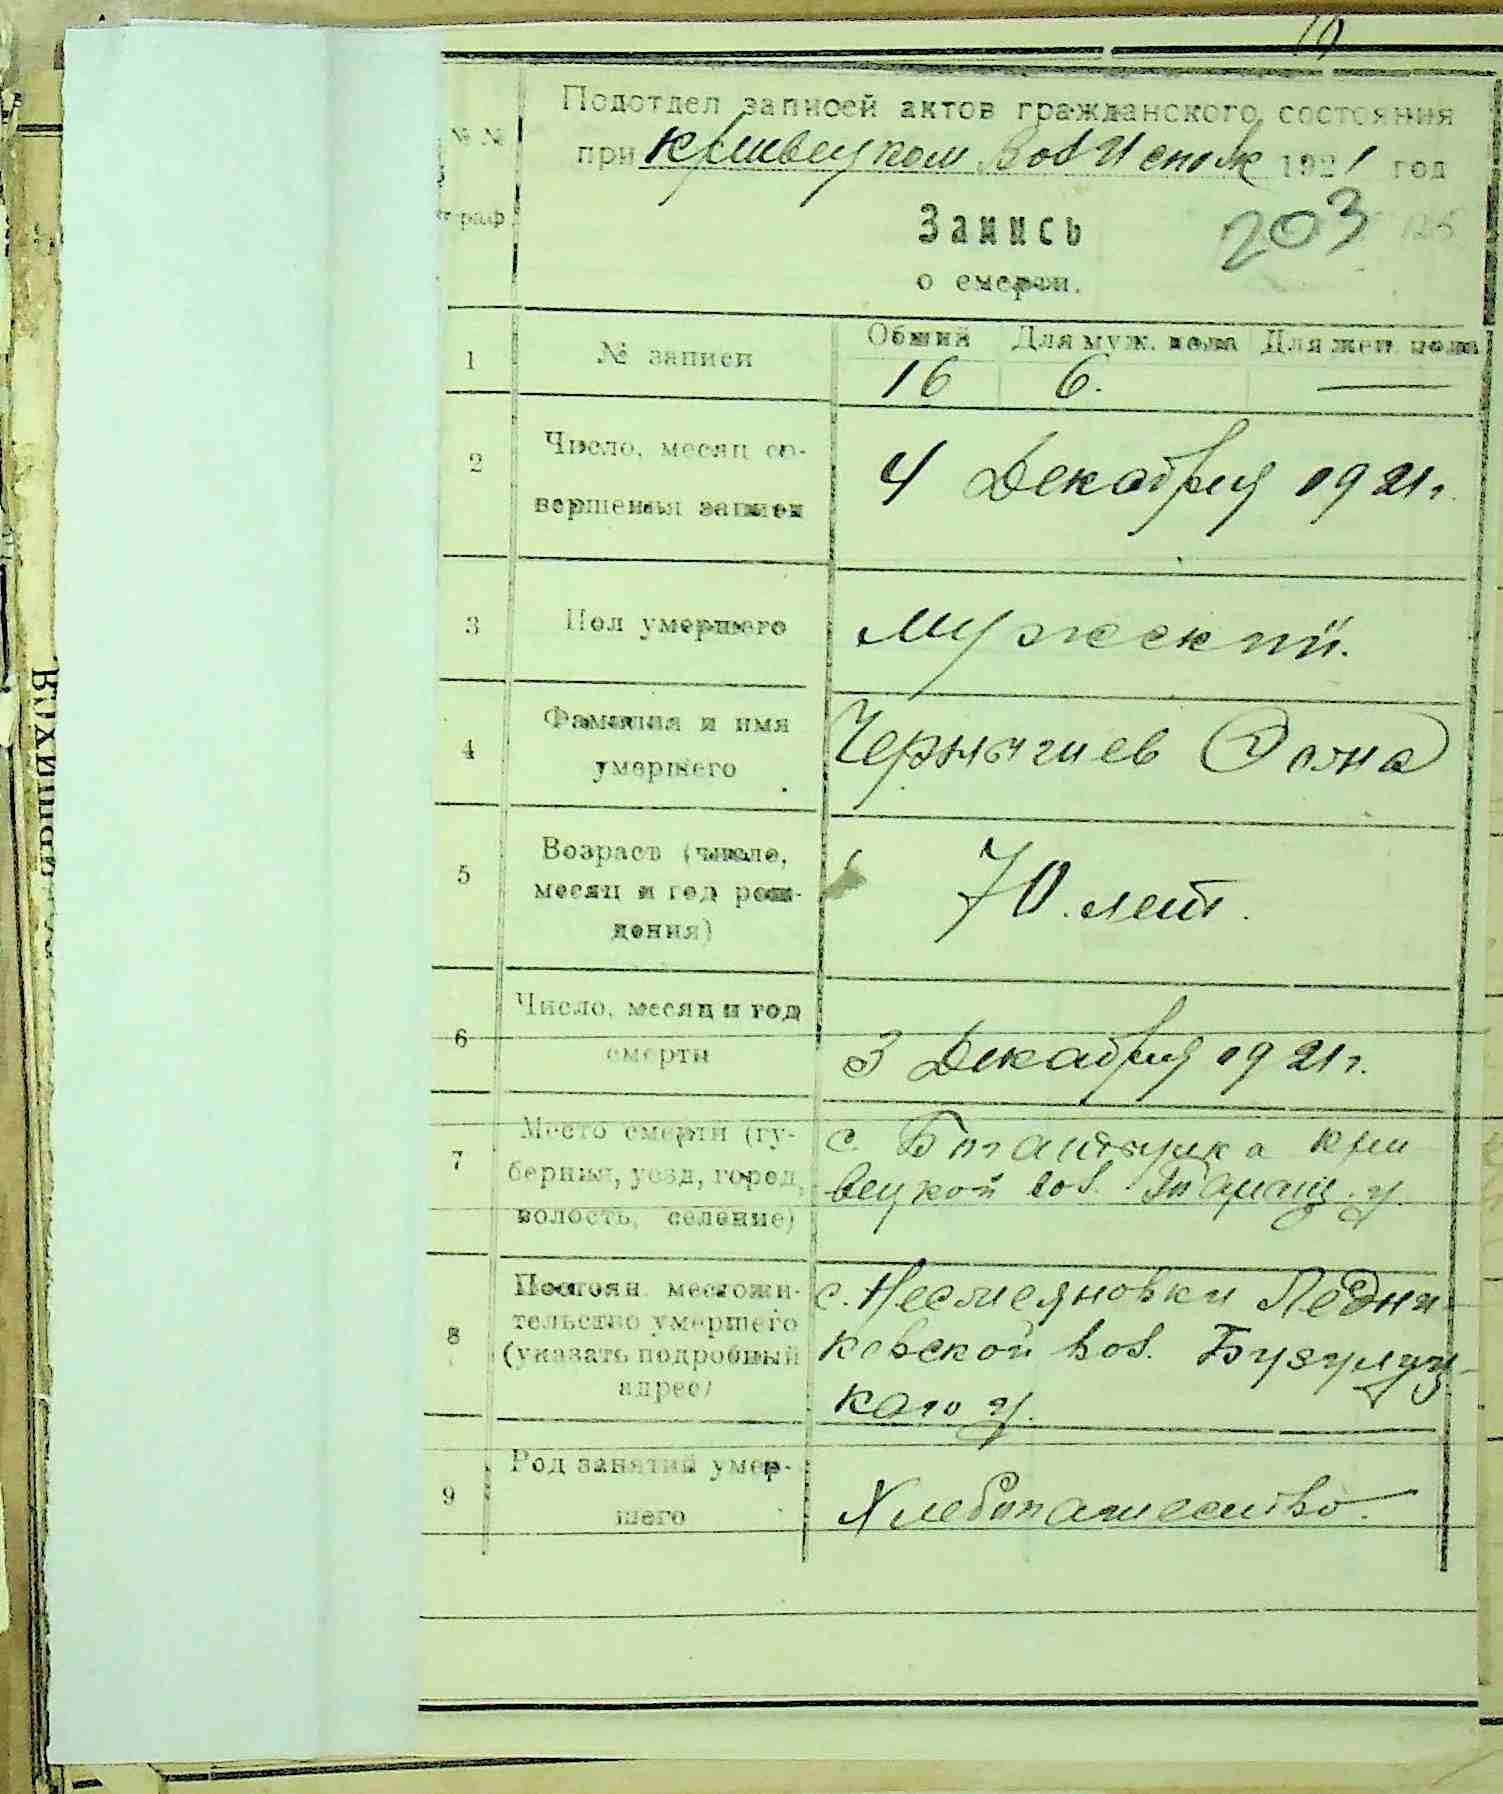 Подотдел записей актов гражданского состояния
при Кривецком Вол Исполк 1921 год
№ №
граф
Запись
203
о смерти.
1
№ записи
Общий Для муж. пола Для жен. пола
16 6. —
2
Число, месяц со-
вершенья записи
4 Декабря 1921 г.
3
Пол умершего
Мужский.
4
Фамилия и имя
умершего
Чернычиев
5
Возраст (число,
месяц и год рож-
дения)
70 лет.
6
Число, месяц и год
смерти
3 Декабря 1921 г.
7
Место смерти (гу-
берния, уезд, город,
волость, селение)
с. Кри
вецкой вол. Таращ. у.
8
Постоян. местожи-
тельство умершего
(указать подробный
адрес)
с. Несмеяновки
вол. Бузулуц-
каго у.
9
Род занятий умер-
шего
Хлебопашество.